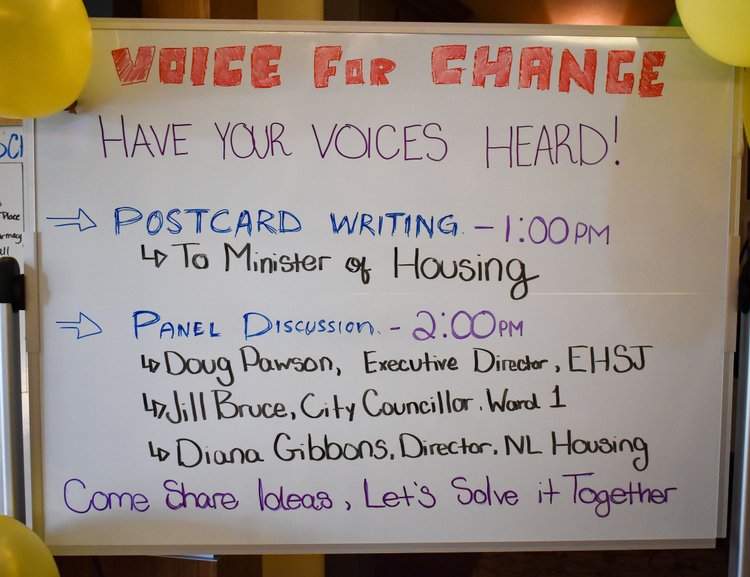 VOICE FOR CHANGE
HAVE YOUR VOICES HEARD!
POSTCARD WRITING - 1:00PM
To Minister of Housing
PANEL DISCUSSION - 2:00PM
Doug Pawson, Executive Director, EHSJ
Jill Bruce, City Councillor. Ward 1
Diana Gibbons, Director. NL Housing
Come Share Ideas, Let's Solve it Together
Place